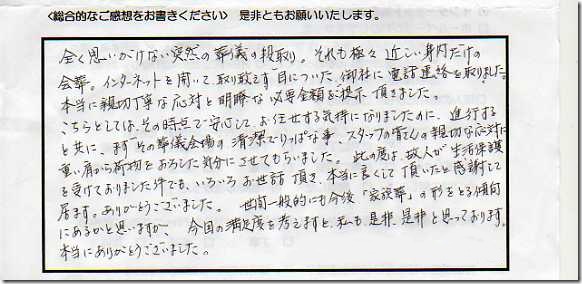 <総合的なご感想をお書きください> 是非ともお願いいたします。
全く思いがけない突然の葬儀の段取り。それも極々近しい身内だけの
会葬。インターネットを開いて、取り敢えず目についた御社に電話連絡を取りました。
本当に親切丁寧な応対と明瞭な必要金額をご提示頂きました。
こちらとしては、その時点で安心してお任せする気持になりましたのに、進行する
と共に、まずその葬儀会場の清潔でりっぱな事、スタッフの皆さんの親切な応対に
重い肩から荷物をおろした気分にさせてもらいました。此の度は、故人が生活保護
を受けておりました件でも、いろいろお世話頂き、本当に良くして頂いたと感謝して
居ます。ありがとうございました。世間一般的にも今後「家族葬」の形をとる傾向
にあるかと思いますが、今回の満足度を考えますと、私も、是非、是非と思っております。
本当にありがとうございました。